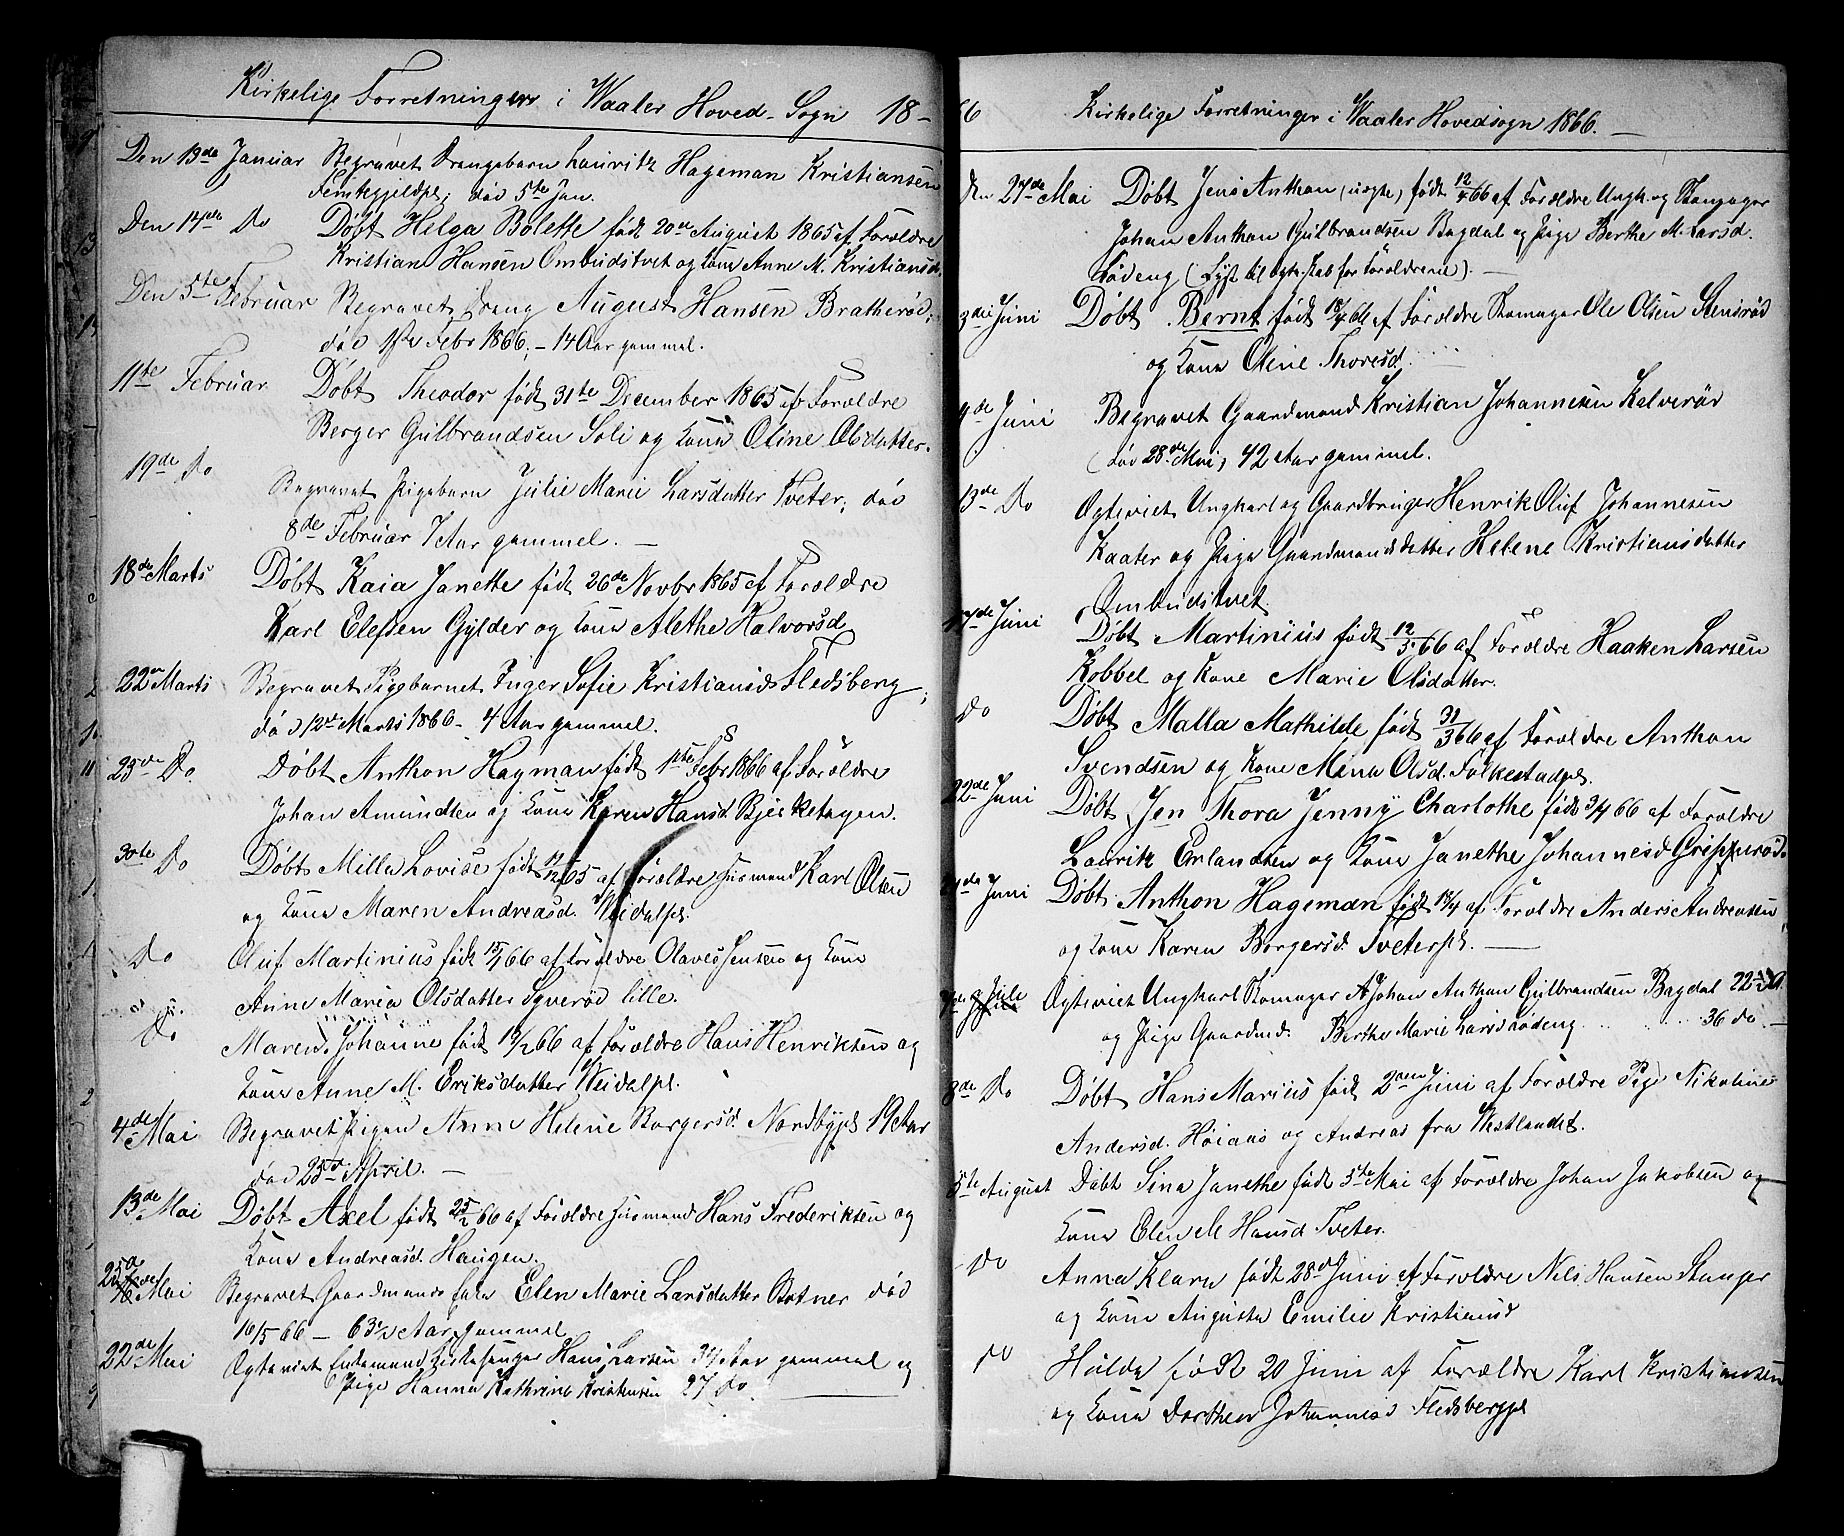 Kirkelige Forretninger i Waaler Hoved-Sogn 18-
Den 13de Januar Begravet Drengebarn Lauritz Hageman Kristiansen
død 5te Jan.
Den 14de Do Døbt Helga Bolette født 20de August 1865 af Forældre
Kristian Hansen Ombudstvet og Kone Anne M. Kristiansd.
Den 5te Februar Begravet Dreng August Hansen Bratherød,
død 1ste Febr 1866. - 14 Aar gammel.
11te Februar Døbt Theodor født 31te December 1865 af Forældre
Berger Gulbrandsen Soli og Kone Oline Olsdatter.
19de Do Begravet Pigebarn Julie Marie Larsdatter Tveter, død
8de Februar 7 Aar gammel. —
18de Marts Døbt Kaia Janette født 26de Novbr 1865 af Forældre
Karl Elefsen Gylder og Kone Alethe Halvorsd
22de Marts Begravet Pigebarnet Inger Sofie Kristiansd Fledsberg,
død 12te Marts 1866 - 4 Aar gammel.
25de Do. Døbt Anthon Hagman født 1ste Febr 1866 af Forældre
Johan Amundsen og Kone Karen Hansd Bjerketagen.
30te Do Døbt Milla Lovise født 65 af Forældre Husmand Karl Olsen
og Kone Maren Andreasd. Weidalpl.
Do Oluf Martinius født 15/1 66 af Forældre Olaves Jensen og Kone
Anne Maria Olsdatter Syverød lille.
Do Maren Johanne født 66 af Forældre Hans Henriksen og
Kone Anne M. Eriksdatter Weidalpl.
4de Mai Begravet Pigen Anne Helene Borgersd. Nordbypl 19 Aar
død 25de April. —
13de Mai Døbt Axel født 25/2 66 af Forældre Husmand Hans Frederiksen og
Kone Andreasd. Haugen.
25de Mai Begravet Gaardmands Enke Elen Marie Larsdatter Botner død
16/5 66 — 63 1/2 Aar gammel
22de Mai Ægteviet Enkemand Kirkesanger Hans Larsen 34 Aar gammel og
Pige Hanna Kathrine Kristensen 27 Do. —
66 Kirkelige Forretninger i Waaler Hovedsogn 1866. —
Den 27de Mai Døbt Jens Anthon (uægte) født 12/4 66 af Forældre Ungk. og Skomager
Johan Anthon Gulbrandsen Bagdal og Pige Berthe M. Larsd.
Lødeng (Lyst til Ægteskab for Forældrene). —
3die Juni Døbt Bernt født 18/4 66 af Forældre Skomager Ole Olsen Stensrød
og Kone Oline Thoresd.
4de Juni Begravet Gaardmand Kristian Johannesen Kalverød
(død 28de Mai) 42 Aar gammel.
13de Do Ægteviet Ungkarl og Gaardbruger Henrik Oluf Johannesen
Kaater og Pige Gaardmandsdatter Helene Kristiansdatter
Ombudstvet.
17de Juni Døbt Martinius født 12/5 66 af Forældre Haaken Larsen
Kobbel og Kone Marie Olsdatter.
Do Døbt Malla Mathilde født 31/3 66 af Forældre Anthon
Svendsen og Kone Mina Olsd. Folkestadpl.
22de Juni Døbt Jen Thora Jenny Charlothe født 3/4 66 af Forældre
Laurik Erlandsen og Kone Janethe Johannesd Gripperød.
24de Juni Døbt Anthon Hageman født 18/4 af Forældre Anders Andreasen
og Kone Karen Borgersd. Tveterpl. —
Juli Ægteviet Ungkarl Skomager Johan Anthon Gulbrandsen Bagdal 22
og Pige Gaardmd. Berthe Marie Larsd Lødeng 36 do —
8de Do Døbt Hans Marius født 2den Juni af Forældre Pige Nikoline
Andersd. Høiaas og Andreas fra Westlandet.
5te August Døbt Sina Janethe født 5te Mai af Forældre Johan Jakobsen og
Kone Elen M Hansd Tveter.
Do Anna Klara født 28de Juni af Forældre Nils Hansen
og Kone Augusta Emilie Kristiansd
Do Hulda født 20 Juni af Forældre Karl Kristiansen
og Kone Dorthea Johannesd Fledsbergpl